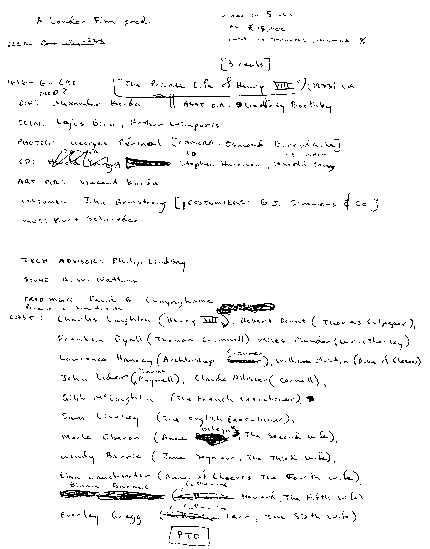 A London Film prod.
[3 reels]
["The Private Life of Henry VIII"] (1933) UA
DIR: Alexander Korda || ASST DIR: Geoffrey Boothby
SCEN: Lajos Biro, Arthur Wimperis
PHOTOG: Georges Périnal [CAMERA: Osmond Borradaile]
ED: Stephen Harrison, Harold Young
ART DIR: Vincent Korda
COSTUMES: John Armstrong [COSTUMIERS: B.J. Simmons & Co]
MUSIC: Kurt Schroeder
TECH ADVISOR: Philip Lindsay
SOUND: A.W. Watkins
PROD MGR: David B. Cunynghame
CAST: Charles Laughton (Henry VIII), Robert Donat (Thomas Culpeper),
Franklin Dyall (Thomas Cromwell) Miles Mander (Wriothesley)
Lawrence Hanray (Archbishop Cranmer), William Austin (Duke of Cleves)
John Loder (Peynell), Claude Allister (Cornell),
Gibb McLaughlin (The French Executioner)
Sam Livesey (The English Executioner),
Merle Oberon (Anne Boleyn, The Second Wife),
Wendy Barrie (Jane Seymour, The Third Wife),
Elsa Lanchester (Anne of Cleves The Fourth Wife)
Binnie Barnes (Catherine Howard, The Fifth Wife)
Everley Gregg (Catherine Parr, The Sixth Wife)
PTO